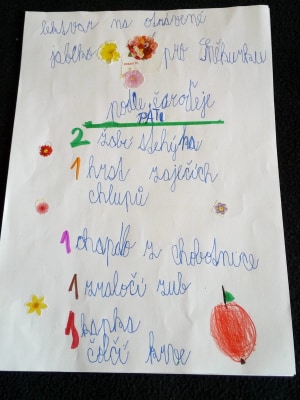 lektvar na otrávené
jablko pro Sněhurku
podle čaroděje
PÁTI
2 žabí stehýnka
1 hrst zaječích
chlupů
1 chapadlo z chobotnice
1 žraločí zub
1 kapka
čolčí krve